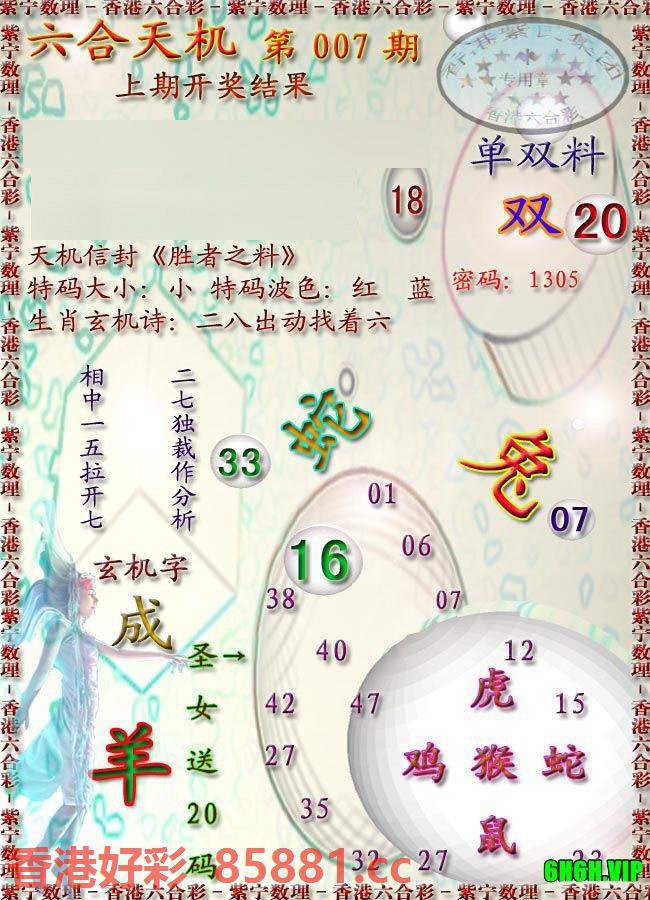 紫宁数理－香港六合彩－紫宁数理－香港六合彩－紫宁数理－香港六合彩
六合天机 第 007 期
上期开奖结果
专用章
香港六合彩
单双料
18
双 20
天机信封《胜者之料》
特码大小：小 特码波色：红 蓝
密码：1305
生肖玄机诗：二八出动找着六
相中一五拉开七
二七独裁作分析
33
蛇
兔
07
01
16
06
38
07
玄机字
成
圣女送20码
→
40
12
虎
42
47
15
羊
27
鸡 猴 蛇
35
鼠
32
27
香港好彩 85881.cc
6H6H.VIP
紫宁数理－香港六合彩－紫宁数理－香港六合彩－紫宁数理－香港六合彩